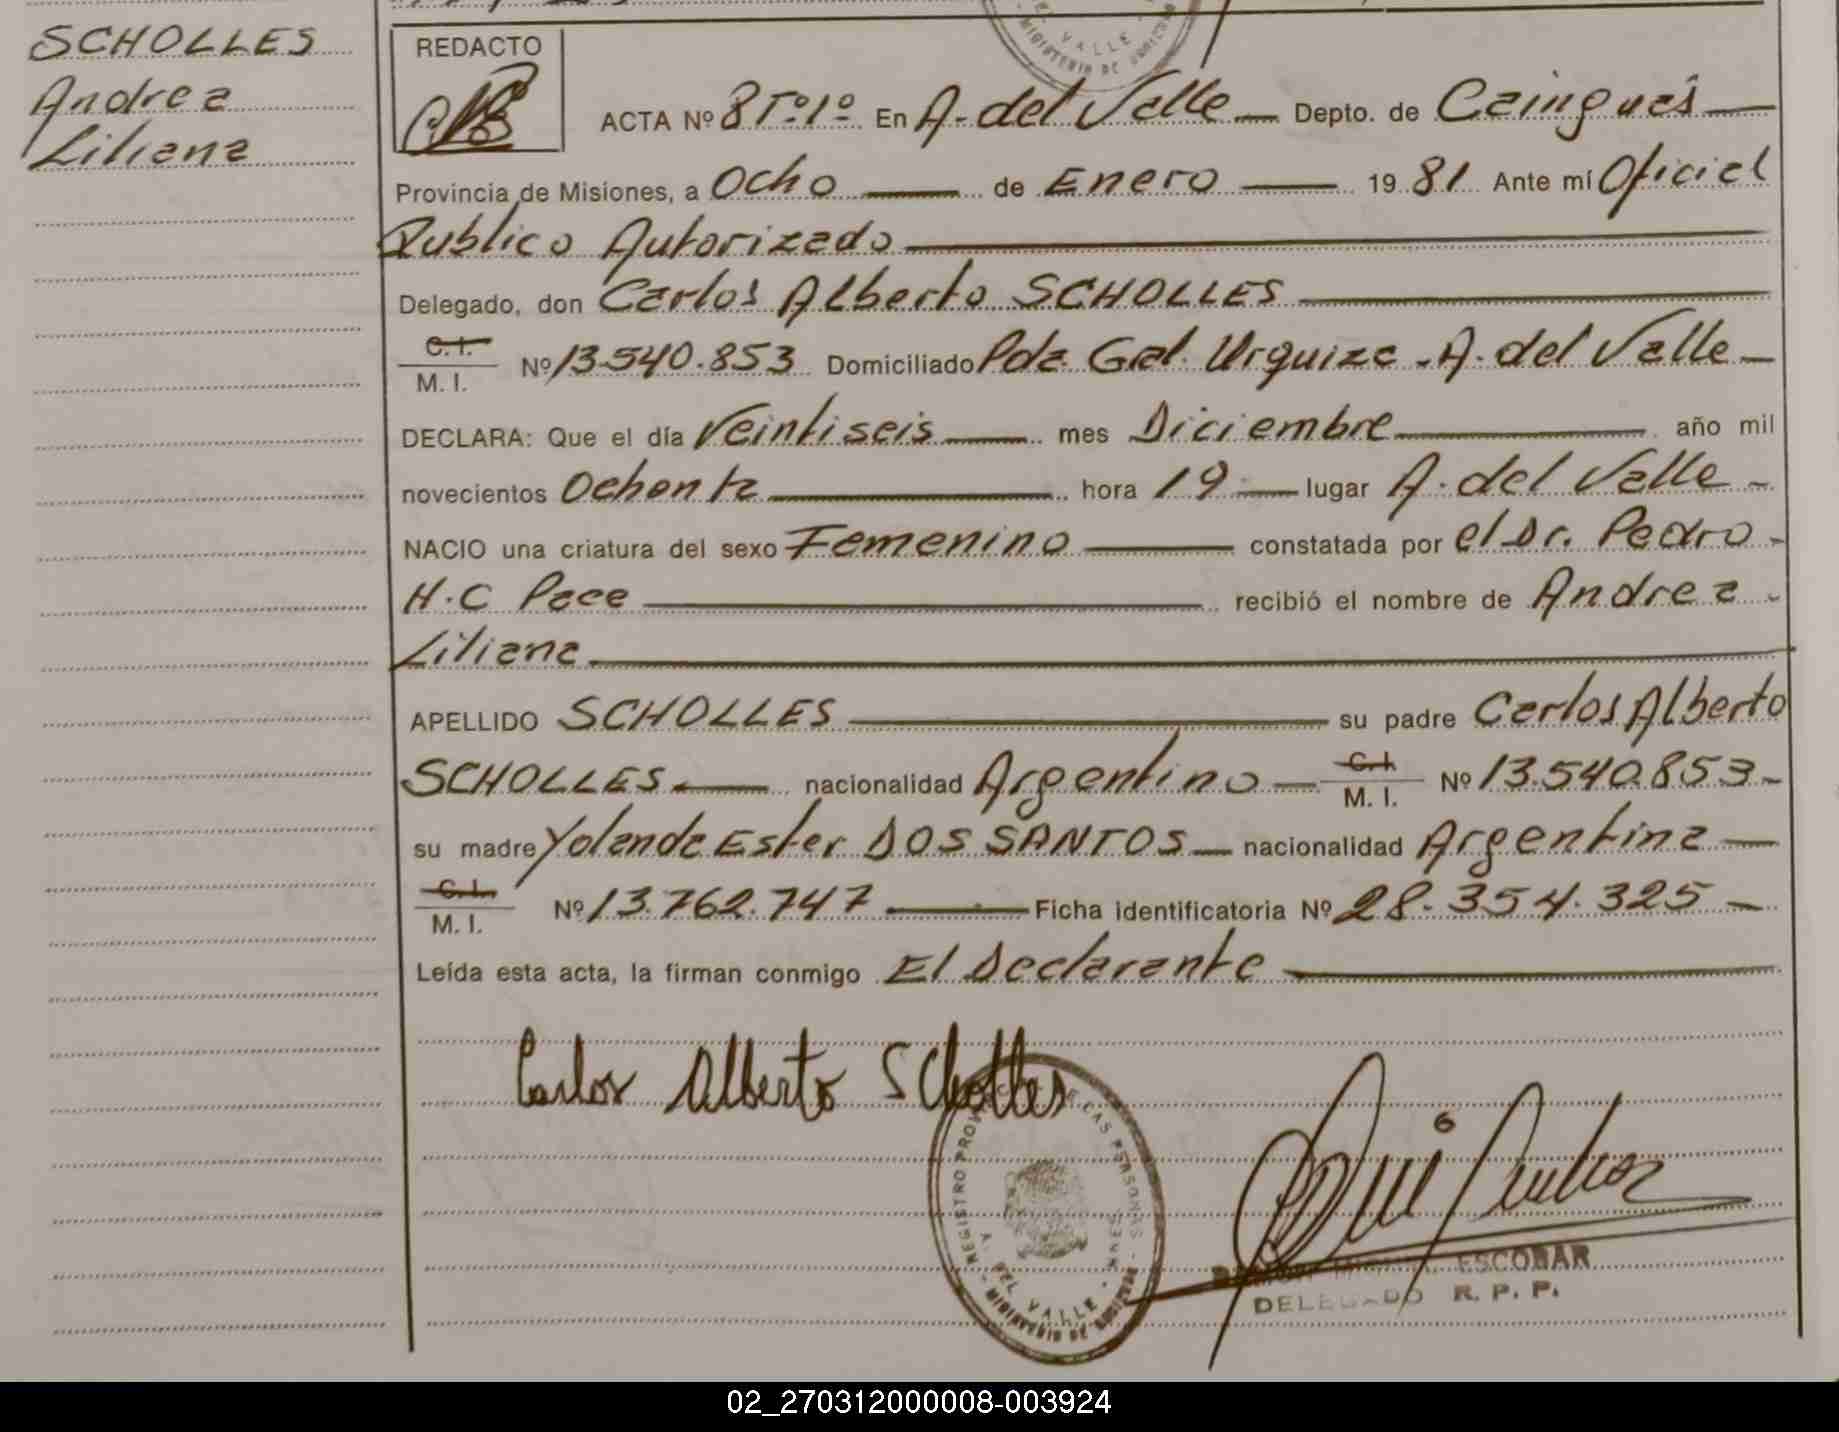 SCHOLLES
Andrea
Liliana
REDACTO
ACTA Nº 8 Tº 1º En A. del Valle Depto. de Cainguás
Provincia de Misiones, a Ocho de Enero 19 81 Ante mí Oficial
Publico Autorizado
Delegado, don Carlos Alberto SCHOLLES
C. I.
M. I. Nº 13.540.853 Domiciliado Pda. Gral. Urquiza - A. del Valle
DECLARA: Que el día Veintiseis mes Diciembre año mil
novecientos Ochenta hora 19 lugar A. del Valle
NACIO una criatura del sexo Femenino constatada por el Dr. Pedro
H.C Pace recibió el nombre de Andrea
Liliana
APELLIDO SCHOLLES su padre Carlos Alberto
SCHOLLES nacionalidad Argentino C. I. M. I. Nº 13.540.853
su madre Yolanda Ester DOS SANTOS nacionalidad Argentina
C. I.
M. I. Nº 13.762.747 Ficha identificatoria Nº 28.354.325
Leída esta acta, la firman conmigo El Declarante
Carlos Alberto Scholles
REGISTRO PROV DE LAS PERSONAS
A. DEL VALLE - MNES.
MINISTERIO DE
ESCOBAR
DELEGADO R. P. P.
02_270312000008-003924